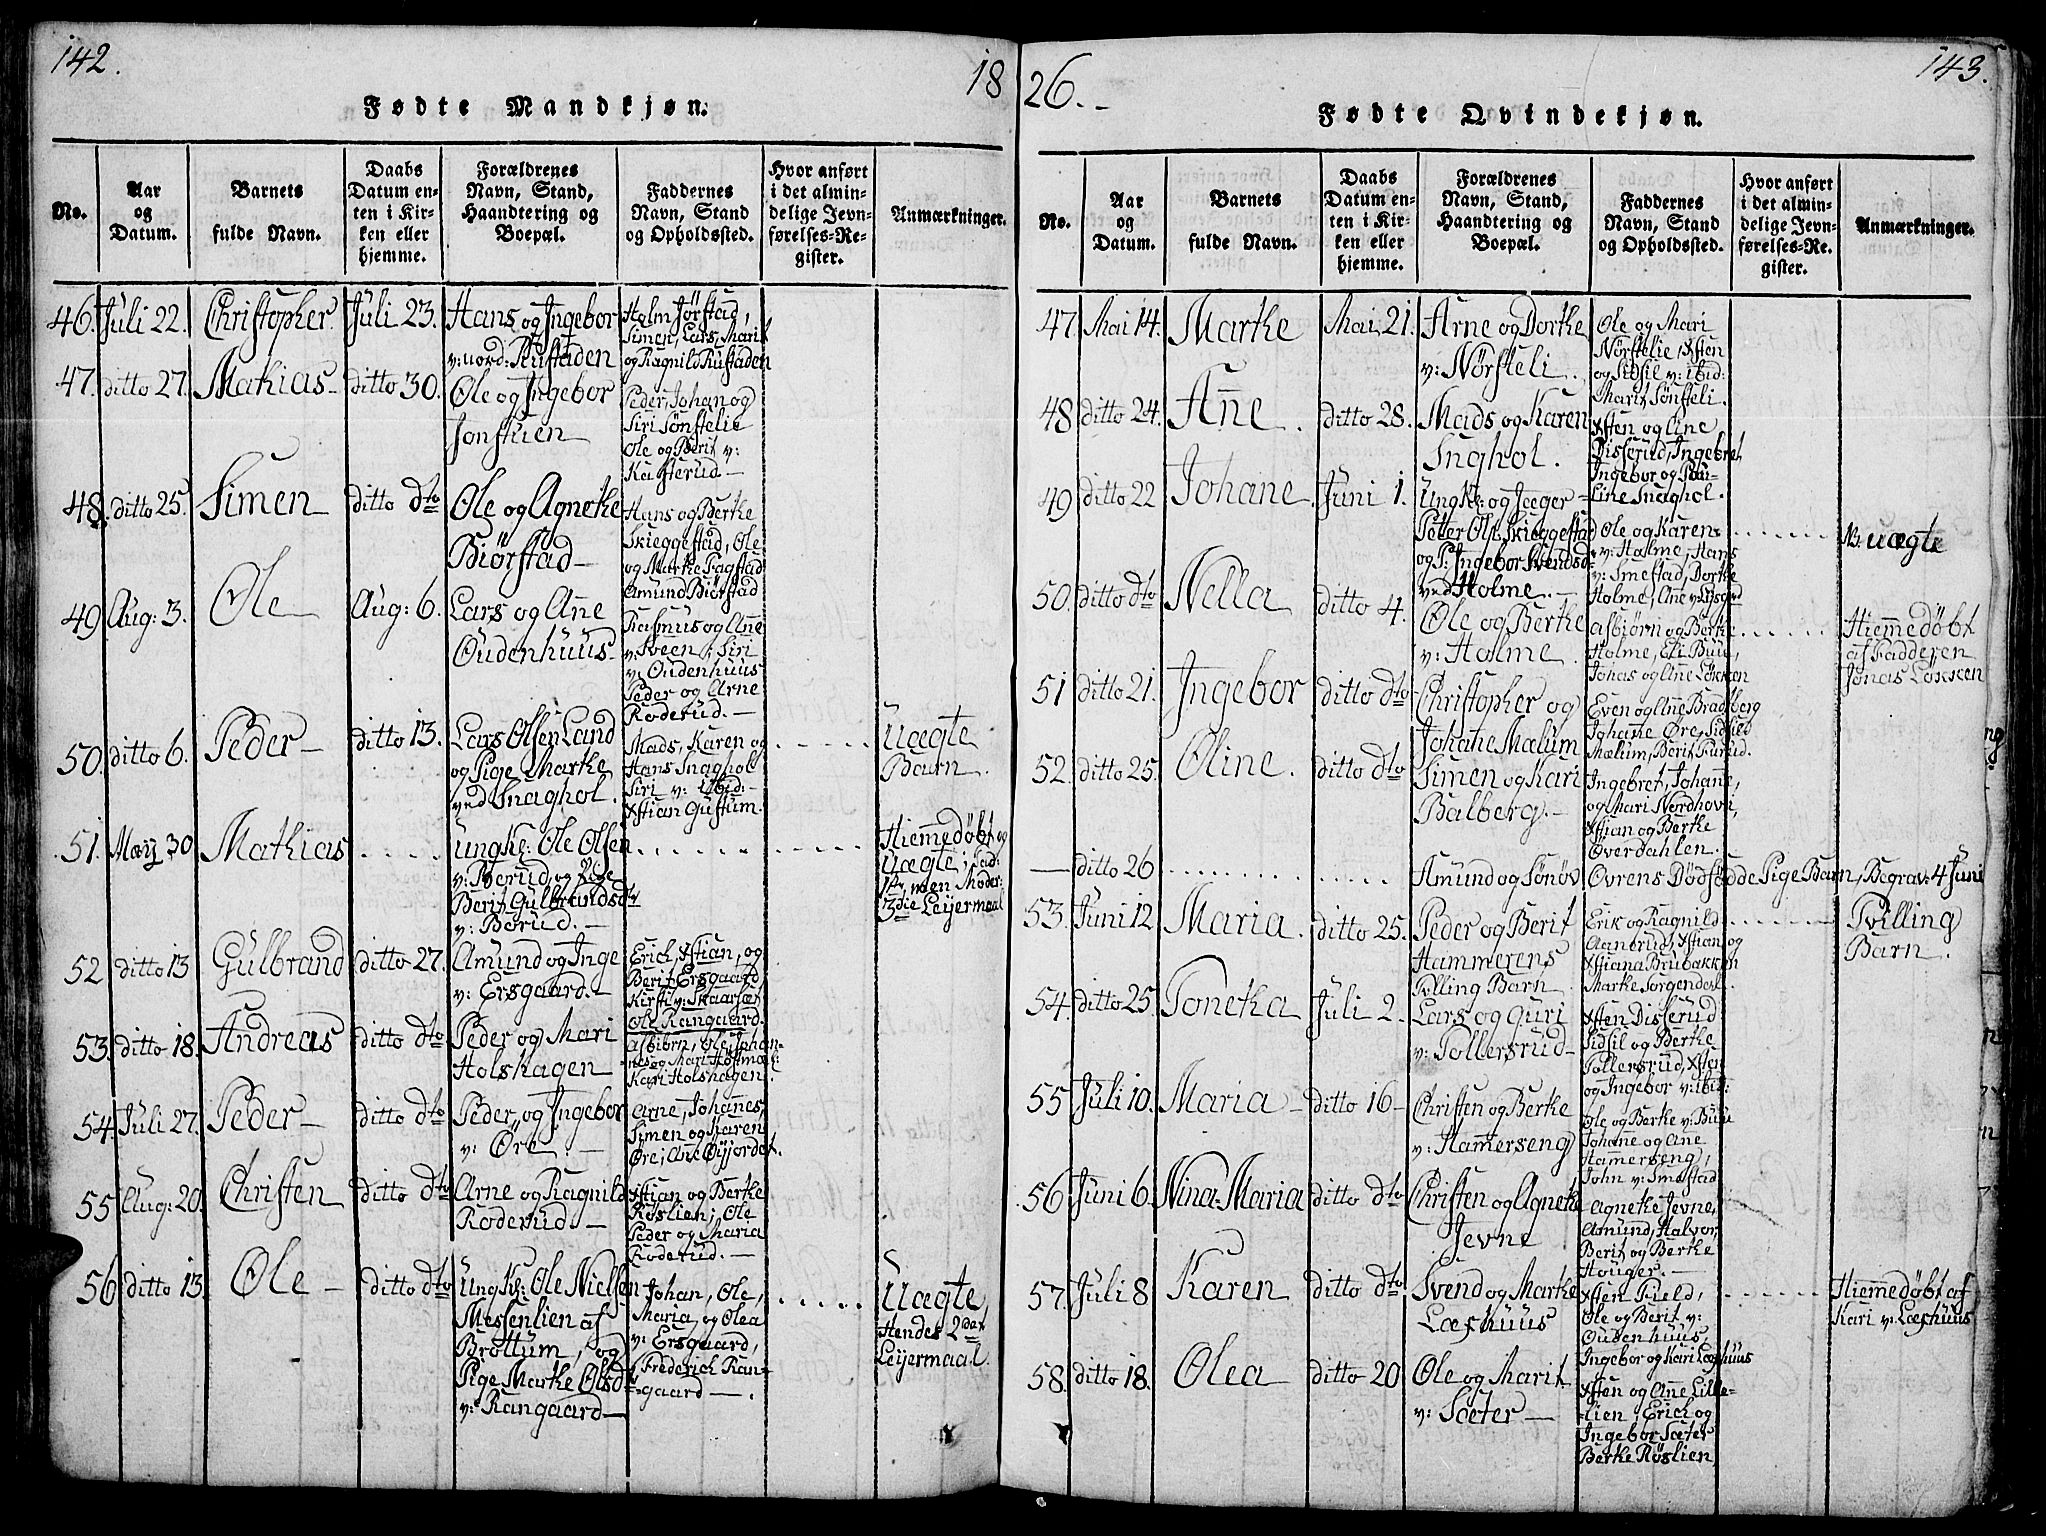 142.
18
Fødte Mandkjøn.
No.
Aar
og
Datum.
Barnets
fulde Navn.
Daabs
Datum en-
ten i Kir-
ken eller
hjemme.
Forældrenes
Navn, Stand,
Haandtering og
Boepæl.
Faddernes
Navn, Stand
og Opholdssted.
Hvor anført
i det almin-
delige Jevn-
førelses-Re-
gister.
Anmærkninger.
46. Juli 22. Christopher. Juli 23. Hans og Ingebor
v: nord: Rustaden
Halm Jørstad,
Simen, Lars, Marit
og Ragnild Rustaden
47. ditto 27. Mathias- ditto 30. Ole og Ingebor
Jonstuen
Peder, Johan og
Siri Sønstelie
Ole og Berit v:
48. ditto 25. Simen ditto dto Ole og Agnethe
Biørstad-
Hans og Berthe
Skieggestad, Ole
og Marthe Fagstad
Amund Biørstad
49 Aug: 3. Ole Aug: 6. Lars og Ane
Oudenhuus-
Rasmus og Anne
v: Sveen; Siri
v: Oudenhuus
Peder og Arne
Roderud.-
50. ditto 6. Peder- ditto 13. Lars Olsen Land
og Pige Marthe
ved Snaghol.
Mads, Karen og
Hans Snaghol
Siri v: ibid:-
Xstian Gustum.
Uægte
Barn.
51. May 30 Mathias Ungk: Ole Olsen
og Pige
Berit Gulbrandsdtr
v: Borud.-
Hiemmedøbt og
Uægte;
1te, men Moder:
3die Leyermaal
52 ditto 13 Gulbrand ditto 27. Amund og Inge
v: Ersgaard.-
Erich, Xstian, og
Berit Ersgaard
Kirsti v: Skaarsæt
Ole Rangaard.
53. ditto 18. Andreas ditto dto Peder og Mari
Holshagen
Asbiørn, Ole, Johan-
nes og Mari
Kari Holshagen.
54. Juli 27. Peder- ditto dto Peder, og Ingebor
v: Øre.-
Arne, Johannes,
Simen og Karen
Øre; Ane Øyjordet.
55 Aug: 20. Christen ditto dto Arne og Ragnild
Roderud.-
Xstian og Berthe
Røslien; Ole
Peder og Maria
Roderud.-
56 ditto 13. Ole- ditto dto Ungk: Ole Nielsen
Messenlien af
Brøttum, og
Pige Marthe Olsdtr
v: Rangaard-
Johan, Ole,
Maria, og Olea
v: Ersgaard,
Frederich Ran-
gaard-.
Uægte,
Hendes 2det
Leyermaal.
26.-
143.
Fødte Qvindekjøn.
No.
Aar
og
Datum.
Barnets
fulde Navn.
Daabs
Datum en-
ten i Kir-
ken eller
hjemme.
Forældrenes
Navn, Stand,
Haandtering og
Boepæl.
Faddernes
Navn, Stand
og Opholdssted.
Hvor anført
i det almin-
delige Jevn-
førelses-Re-
gister.
Anmærkninger.
47. Mai 14. Marthe Mai, 21. Arne og Dorthe
v: Nørsteli.
Ole og Mari
Nørstelie, Xsten
og Sidsil v: ibid:
Marit Sønsteli.
48 ditto 24. Anne. ditto 28. Mads og Karen
Snghol.
Xsten og Ane
Disserud, Ingebret
Ingebor og Pau-
line Snaghol.
49 ditto 22 Johane. Juni 1. Ungk: og Jæger
Peter Ols: Skieggestad
og P: Ingebor Svendsd
ved Holme.-
Ole og Karen
v: Holme, Hans
v: Smestad, Dorthe
Holme, Ane v:
NB: uægte
50. ditto dto Nella ditto 4. Ole og Berthe
v: Holme.
Asbiørn og Berthe
Holme, Eli Bue,
Johas og Anne Løkken
Hiemmedøbt
af Fadderen
Jonas Løkken
51 ditto 21. Ingebor ditto dto Christopher og
Johane Mælum
Even og Ane Bradberg
Johanne Øre, Sidsild
Mælum, Berit Furud.
52. ditto 25. Oline. ditto dto Simen og Kari
Balberg.-
Ingebret, Johanne,
og Mari Nordhove,
Xstian og Berthe
Overdahlen.
- ditto 26 Amund og Sønøv Ovrens Dødfødde Pige Barn, Begrav: 4 Juni
53. Juni 12 Maria. ditto 25. Peder og Berit
Hammerens
Tvilling Barn.
Erik og Ragnild
Aanerud, Xstian og
Xstiana Brubakken
Marthe Sorgendal.
Tvilling
Barn.
54. ditto 25. Tonetha Juli 2. Lars og Guri
v: Tollersrud-
Xsten Disserud
Sidsil og Berthe
Tollersrud, Xsten
og Ingebor v: ibid:
55 Juli 10. Maria- ditto 16- Christen og Berthe
v: Hammerseng
Ole og Berthe v: Bue
Johanne og Ane
Hammerseng,
John v: Smestad
56 Juni 6. Nina Maria ditto dto Christen og Agnethe
Jevne
Agnethe Jevne,
Amund, Halvor,
Berit og Berthe
Houger.-
57. Juli 8 Karen ditto dto. Svend og Marthe
Læshuus
Xsten Field,
Ole og Berit v:
Oudenhuus,
Ingebor og Kari Læshuus
Hiemmedøbt af
Kari v: Læshuus
58. ditto 18. Olea ditto 20 Ole og Marit
v: Sæter-
Xsten og Anne Lille-
lien; Erich og
Ingebor Sæter
Berthe Røslien